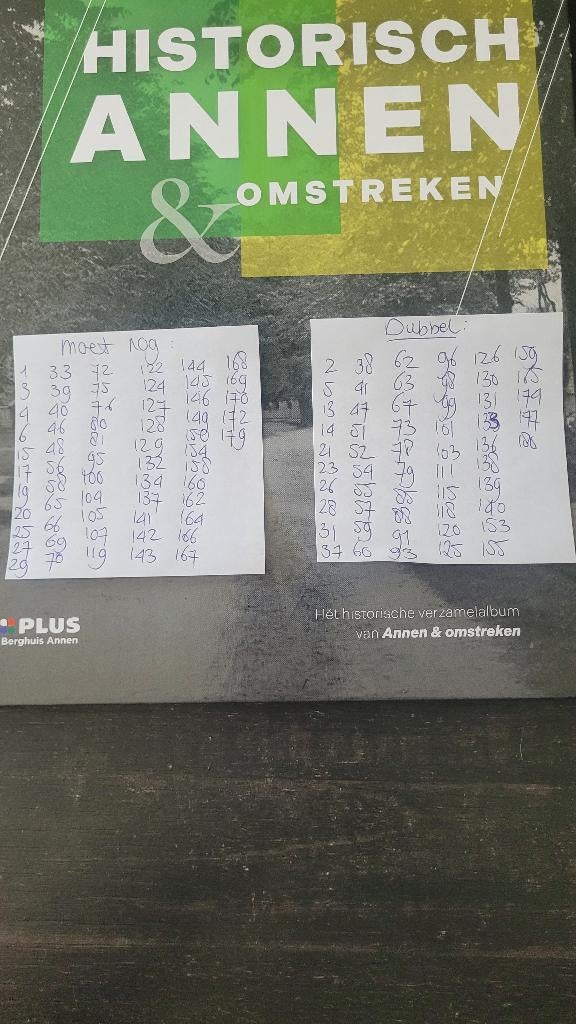 HISTORISCH
ANNEN
& OMSTREKEN
moet nog:
1 33 72 122 144 168
3 39 75 124 145 169
4 40 76 127 146 170
6 46 80 128 149 172
15 48 81 129 150 179
17 56 95 132 154
19 58 100 134 158
20 65 104 137 160
25 66 105 141 162
27 69 107 142 164
29 70 119 143 166
167
Dubbel:
2 38 62 96 126 159
5 41 63 98 130 165
13 47 67 99 131 174
14 51 73 101 133 177
21 52 78 103 136 186
23 54 79 111 138
26 55 85 115 139
28 57 88 118 140
31 59 91 120 153
37 60 93 125 155
PLUS
Berghuis Annen
Hét historische verzamelalbum
van Annen & omstreken